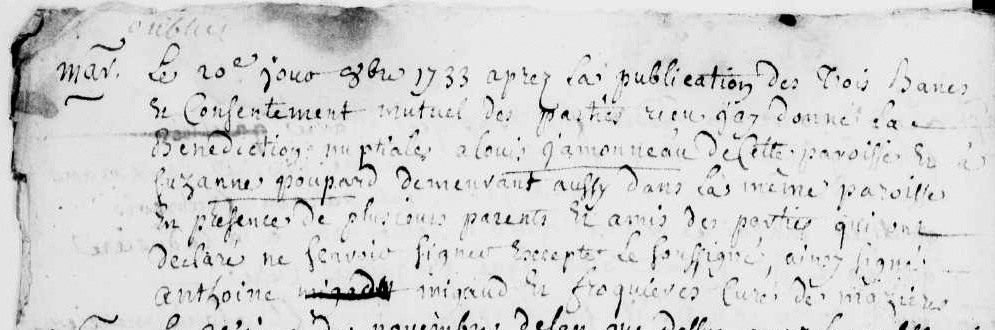 oublié
mar. Le 20e jour 8bre 1733 aprez la publication des trois Bancs
et Consentement mutuel des parties j'ay donné la
Benediction nuptiale a louis gamonneau de Cette paroisse et à
suzanne poupard demeurant aussy dans la même paroisse
en présence de plusieurs parents et amis des parties qui ont
declaré ne scavoir signer Excepté le soussigné, ainsy signé
anthoine migaud et froquieres Curé de mazieres